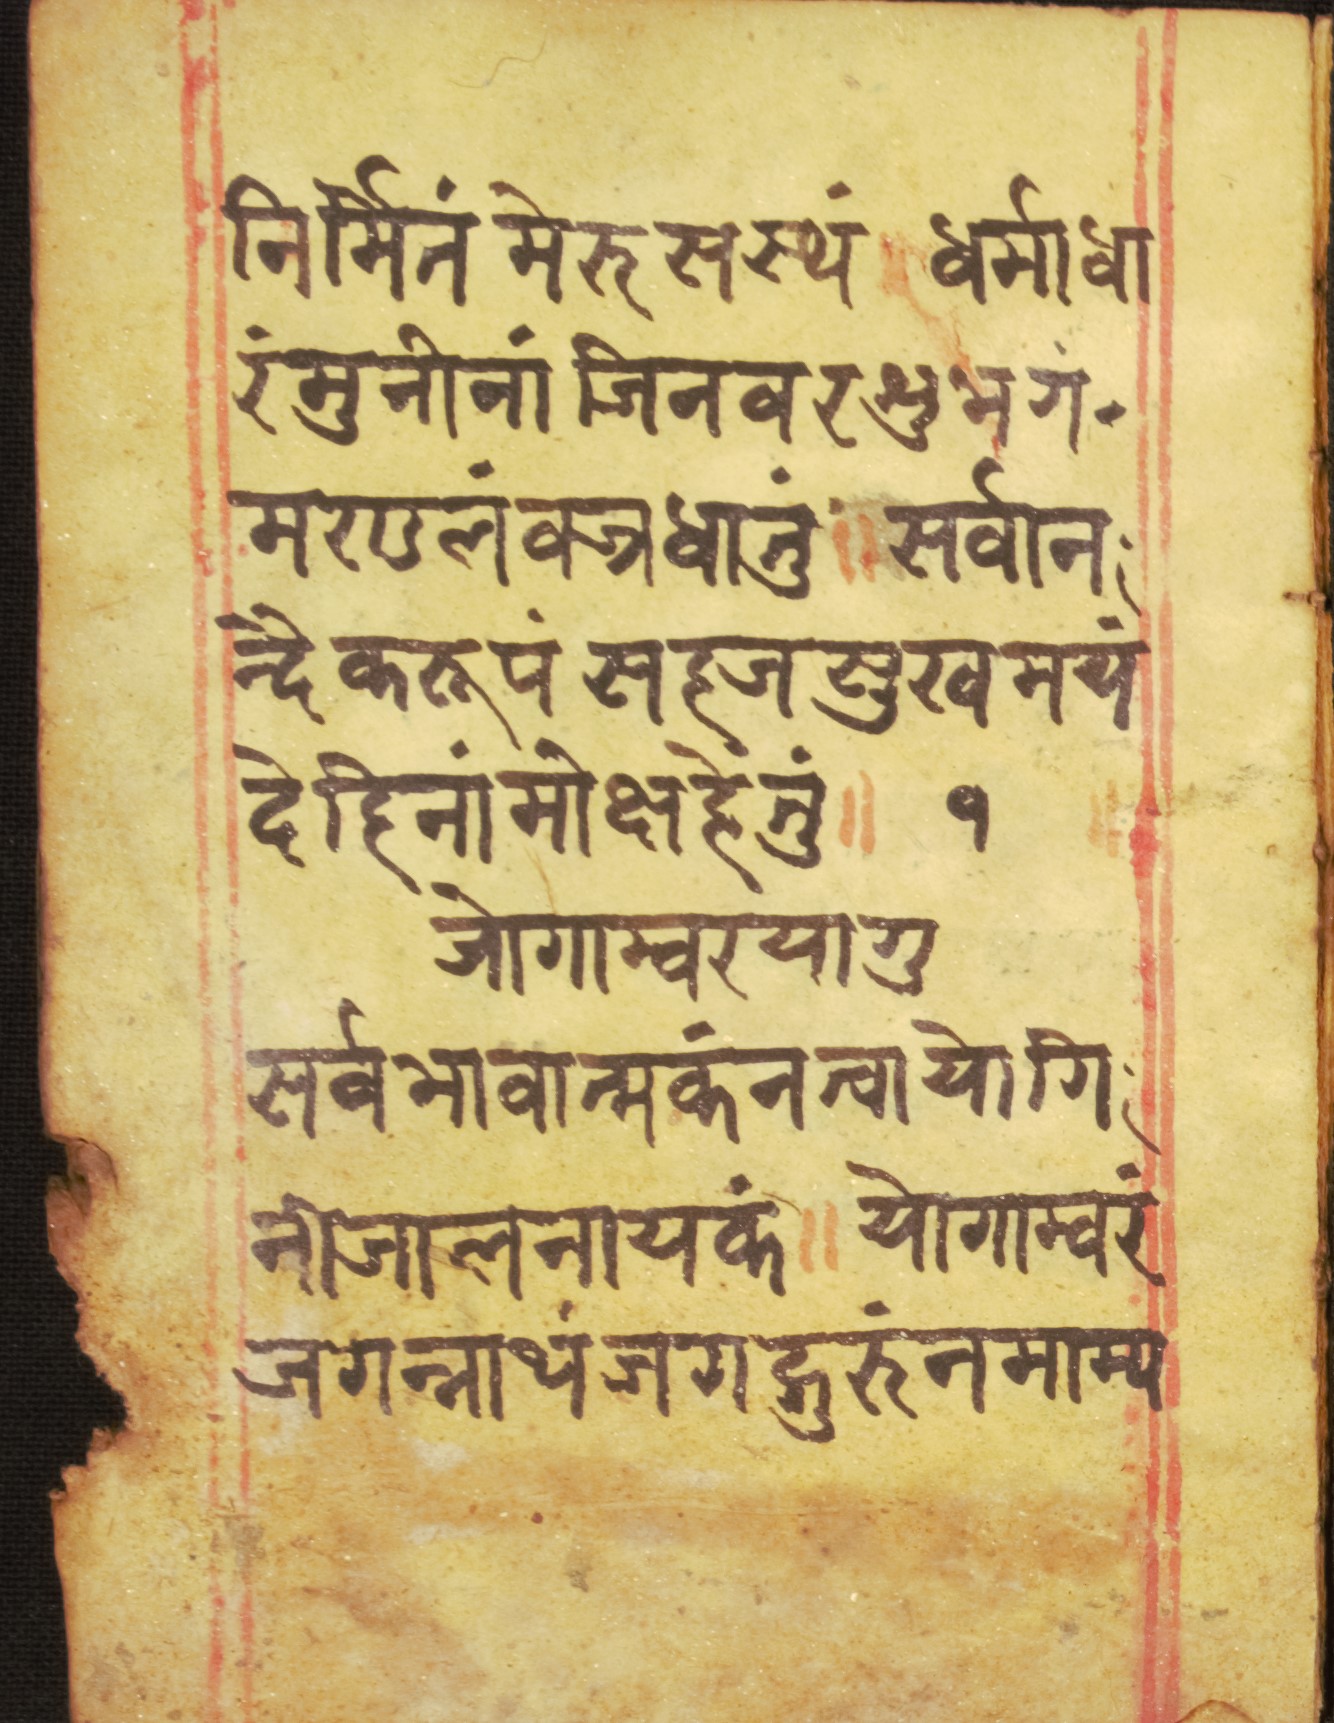 निर्मितं मेरुसस्थं ॥ धर्माधा
रंमुनीनां जिनवरशुभगं·
मण्डलंवज्रधातुं ॥ सर्वान
न्दैकरूपं सहजसुखमयं
देहिनांमोक्षहेतुं ॥ १ ॥
जोगाम्वरयागु
सर्वभावात्मकंनत्वायोगि
नीजालनायकं ॥ योगाम्वरं
जगन्नाथंजगद्गुरुंनमाम्य